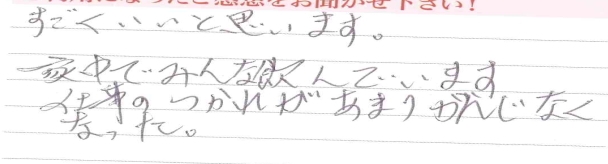 になったご感想をお聞かせ下さい!
すごくいいと思います。
家中でみんな飲んでいます
仕事のつかれがあまりかんじなく
なった。